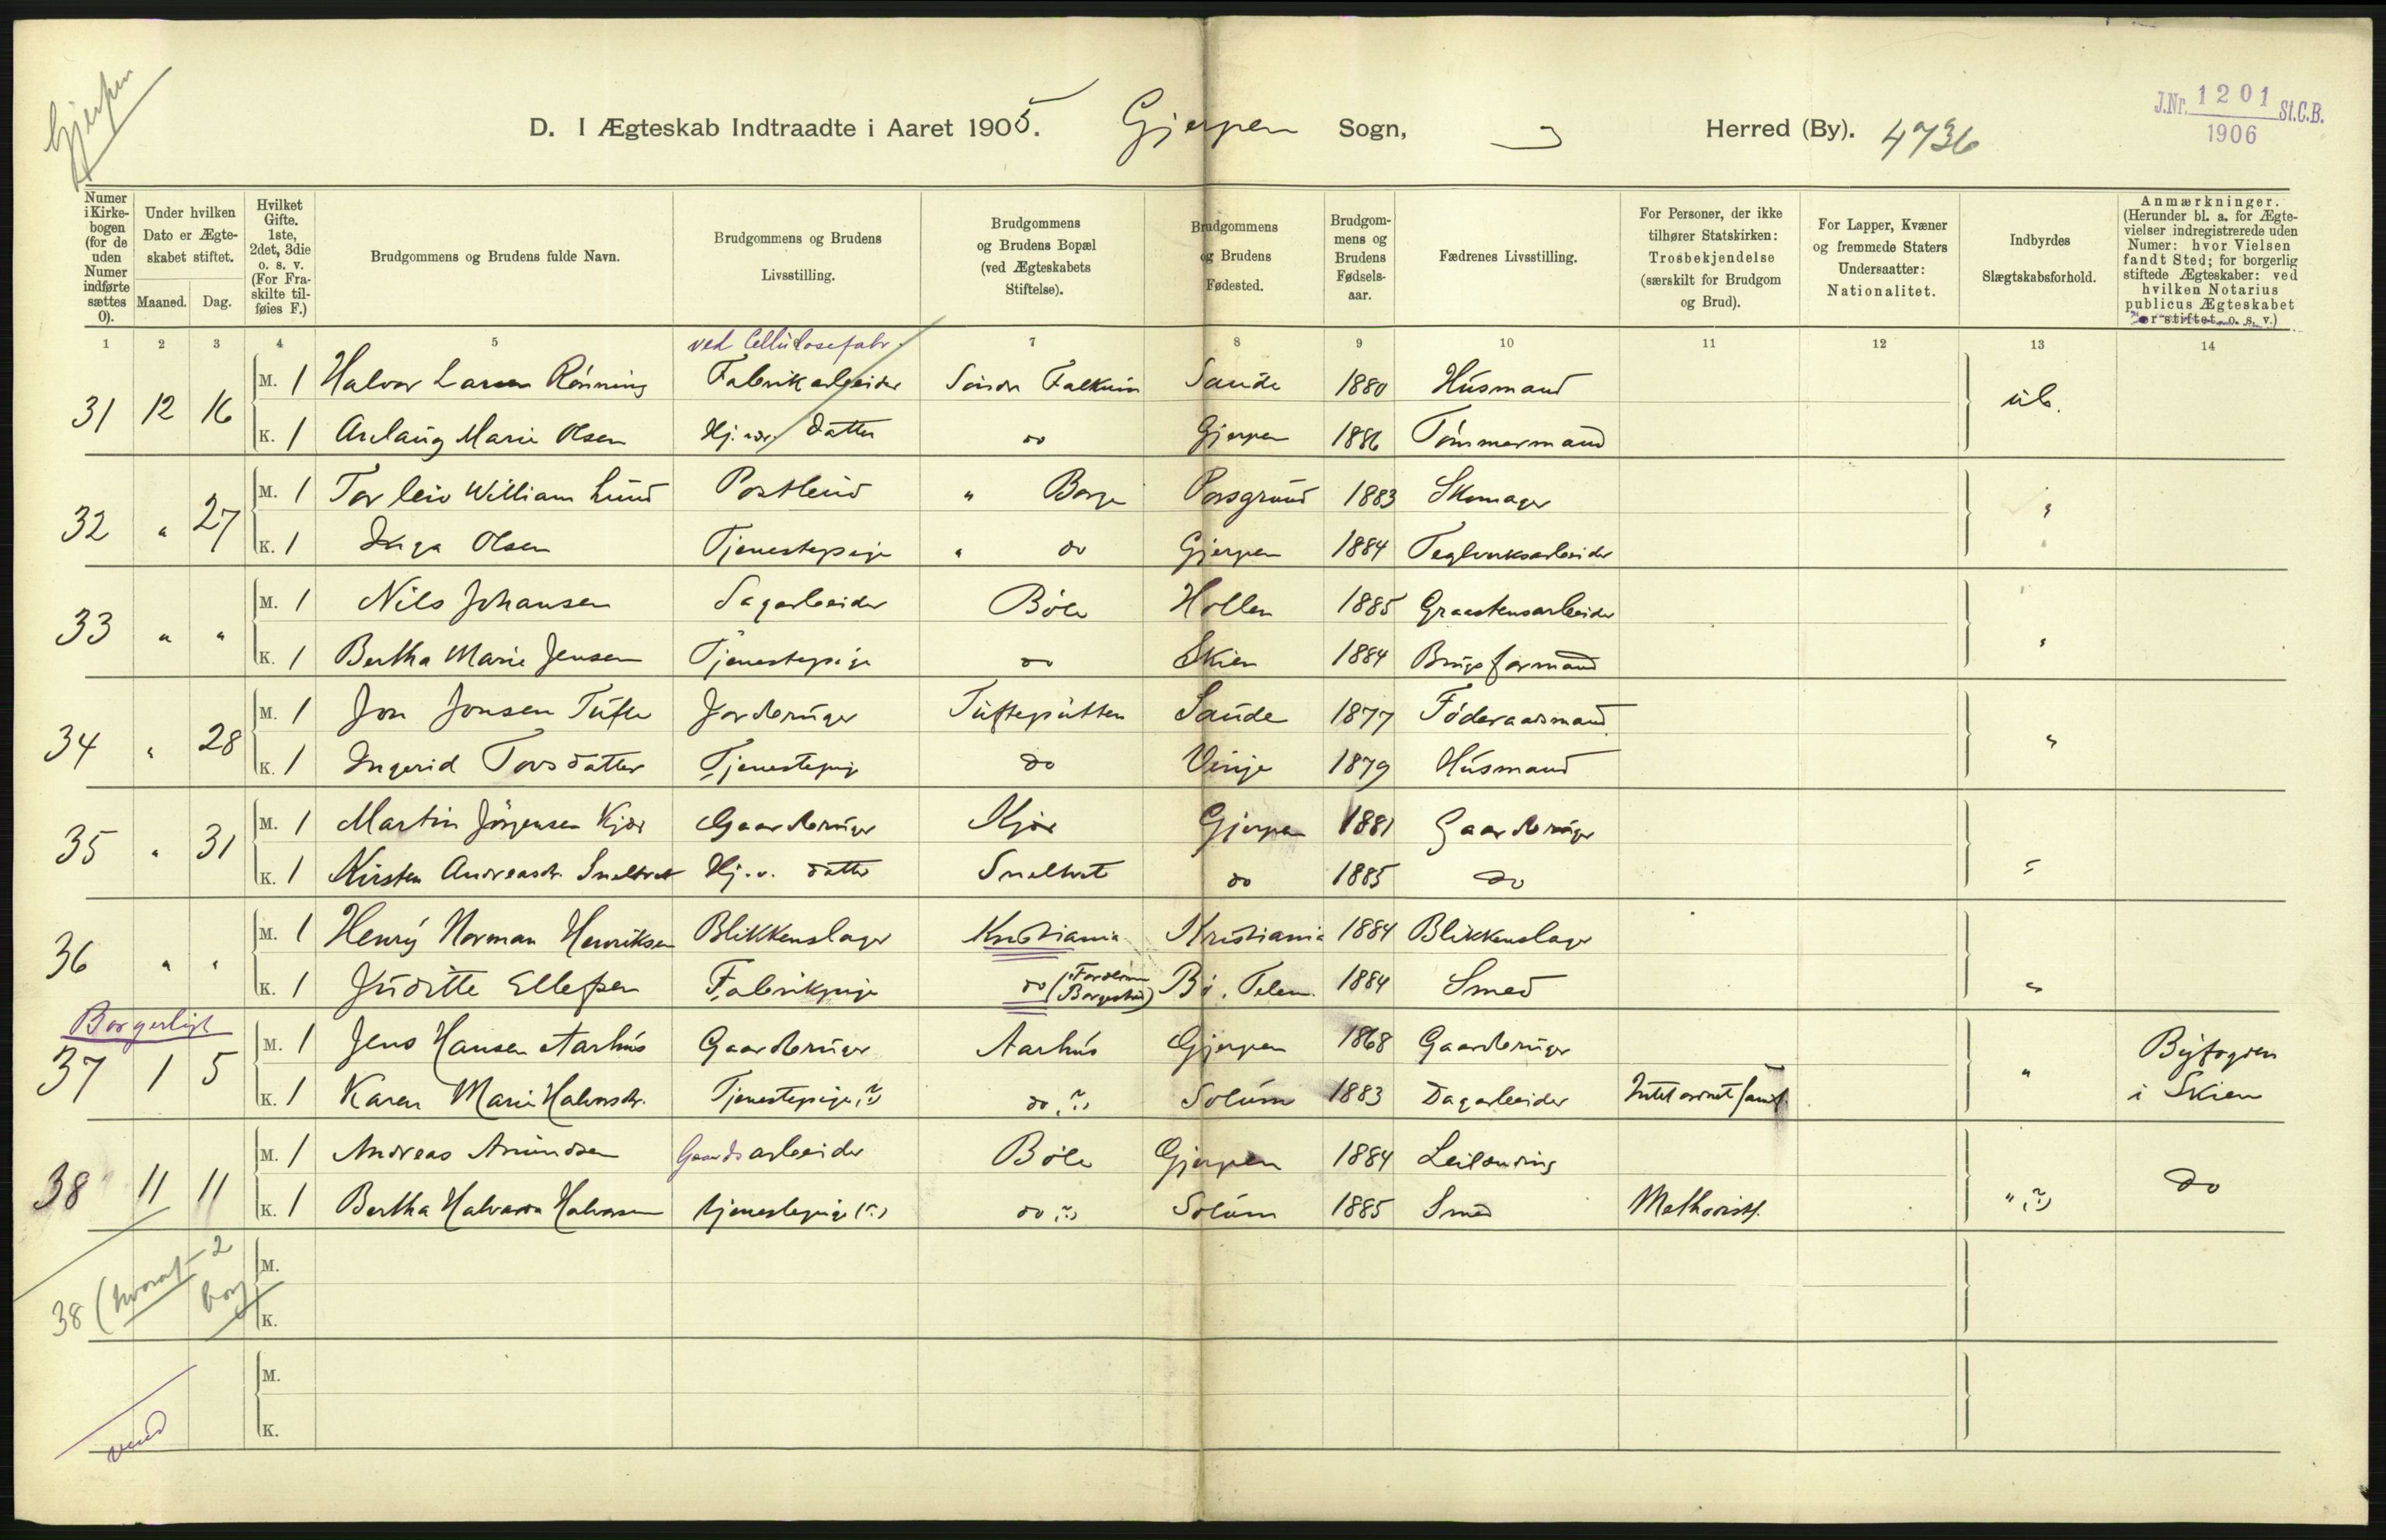 Gjerpen
D. I Ægteskab Indtraadte i Aaret 1905. Gjerpen Sogn, Herred (By). 4736
J.Nr. 1201 St.C.B.
1906
Numer i Kirkebogen (for de uden Numer indførte sættes 0).
Under hvilken Dato er Ægteskabet stiftet.
Maaned. Dag.
Hvilket Gifte. 1ste, 2det, 3die o. s. v. (For Fraskilte tilføies F.)
Brudgommens og Brudens fulde Navn.
Brudgommens og Brudens Livsstilling.
Brudgommens og Brudens Bopæl (ved Ægteskabets Stiftelse).
Brudgommens og Brudens Fødested.
Brudgommens og Brudens Fødselsaar.
Fædrenes Livsstilling.
For Personer, der ikke tilhører Statskirken: Trosbekjendelse (særskilt for Brudgom og Brud).
For Lapper, Kvæner og fremmede Staters Undersaatter: Nationalitet.
Indbyrdes Slægtskabsforhold.
Anmærkninger. (Herunder bl. a. for Ægtevielser indregistrerede uden Numer: hvor Vielsen fandt Sted; for borgerlig stiftede Ægteskaber: ved hvilken Notarius publicus Ægteskabet er stiftet o. s. v.)
1 2 3 4 5 ved Cellulosefabr. 7 8 9 10 11 12 13 14
31 12 16 M. 1 Halvor Larsen Rönning Fabrikarbeider Söndr Falkum Saude 1880 Husmand ub.
K. 1 Aslaug Marie Olsen Hj. vær. Datter do Gjerpen 1886 Tömmermand
32 " 27 M. 1 Torleiv William Lund Postbud " Borge Porsgrund 1883 Skomager "
K. 1 Inga Olsen Tjenestepige " do Gjerpen 1884 Teglverksarbeider
33 " " M. 1 Nils Johansen Sagarbeider Böle Hollen 1885 Graastensarbeider "
K. 1 Bertha Marie Jensen Tjenestepige do Skien 1884 Brugsformand
34 " 28 M. 1 Jon Jonsen Tufte Jordbruger Tufteputten Saude 1877 Föderaadsmand "
K. 1 Ingerid Torsdatter Tjenestepig do Vinje 1879 Husmand
35 " 31 M. 1 Martin Jörgensen Kjær Gaardbruger Kjær Gjerpen 1881 Gaardbruger "
K. 1 Kirsten Andreasdr. Sneltvet Hj. v. datter Sneltvet do 1885 do
36 " " M. 1 Henry Norman Henriksen Blikkenslager Kristiania Kristiania 1884 Blikkenslager "
K. 1 Juditte Ellefsen Fabrikpige do (Fordum Borgestad) Bö. Telem. 1884 Smed
Borgerligt
37 1 5 M. 1 Jens Hansen Aarhus Gaardbruger Aarhus Gjerpen 1868 Gaardbruger " Byfogden
K. 1 Karen Marie Halvorsdr. Tjenestepige (?) do (?) Solum 1883 Dagarbeider Intet ordnet samf. i Skien
38 11 11 M. 1 Andreas Amundsen Gaardsarbeider Böle Gjerpen 1884 Leilænding " (?) do
K. 1 Bertha Halvarda Halvorsen tjenestepige (?) do (?) Solum 1885 Smed Methodist.
38 (hvoraf 2 borg
M.
K.
M.
K.
vend